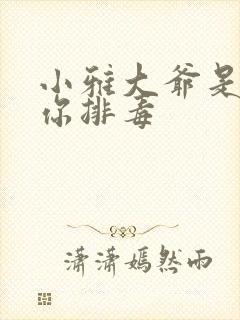 小雅大爷是
你排毒
潇潇嫣然雨